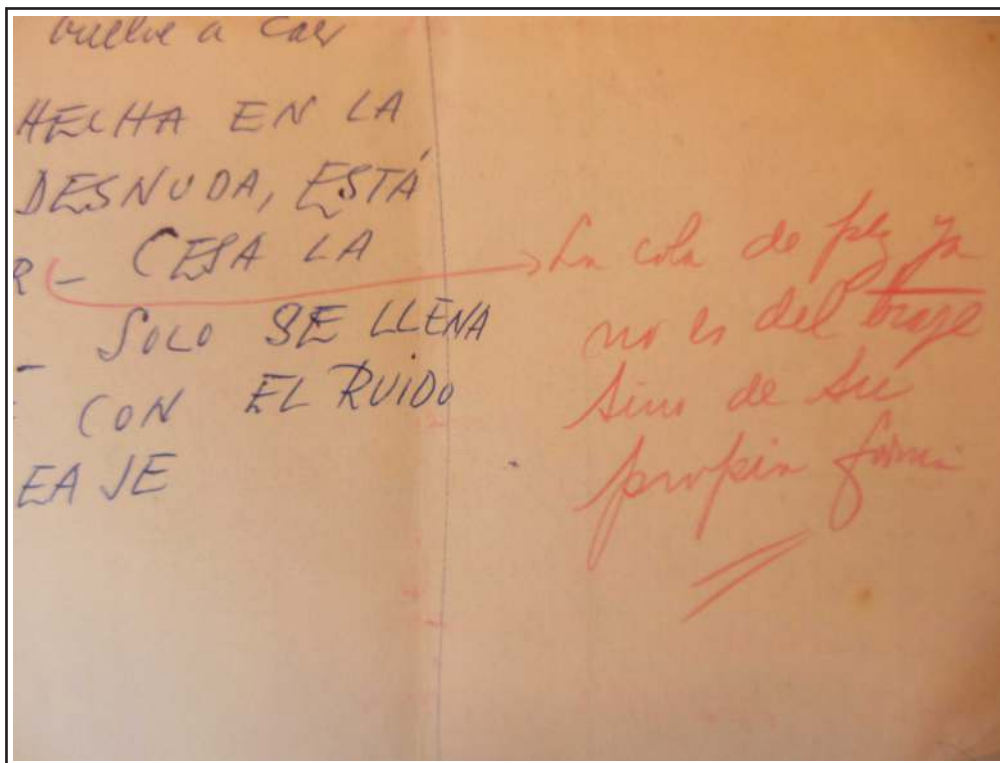 vuelve a caer
HECHA EN LA
DESNUDA, ESTÁ
R - CESA LA
- SOLO SE LLENA
CON EL RUIDO
EAJE
La cola de pez ya
no es del traje
sino de su
propia forma